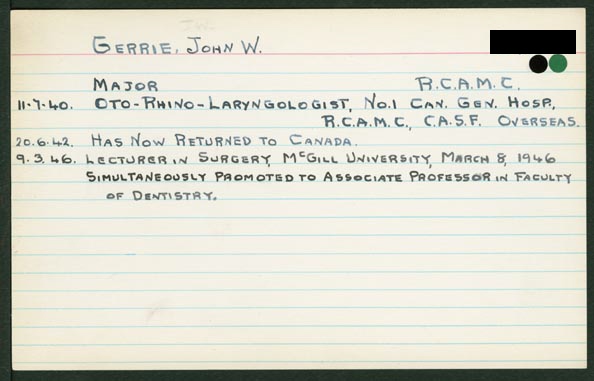 GERRIE, JOHN W.
MAJOR R.C.A.M.C.
11-7-40. OTO-RHINO-LARYNGOLOGIST, NO.1 CAN. GEN. HOSP,
R.C.A.M.C., C.A.S.F. OVERSEAS.
20.6.42. HAS NOW RETURNED TO CANADA.
9.3.46. LECTURER IN SURGERY MCGILL UNIVERSITY, MARCH 8, 1946
SIMULTANEOUSLY PROMOTED TO ASSOCIATE PROFESSOR IN FACULTY
OF DENTISTRY.